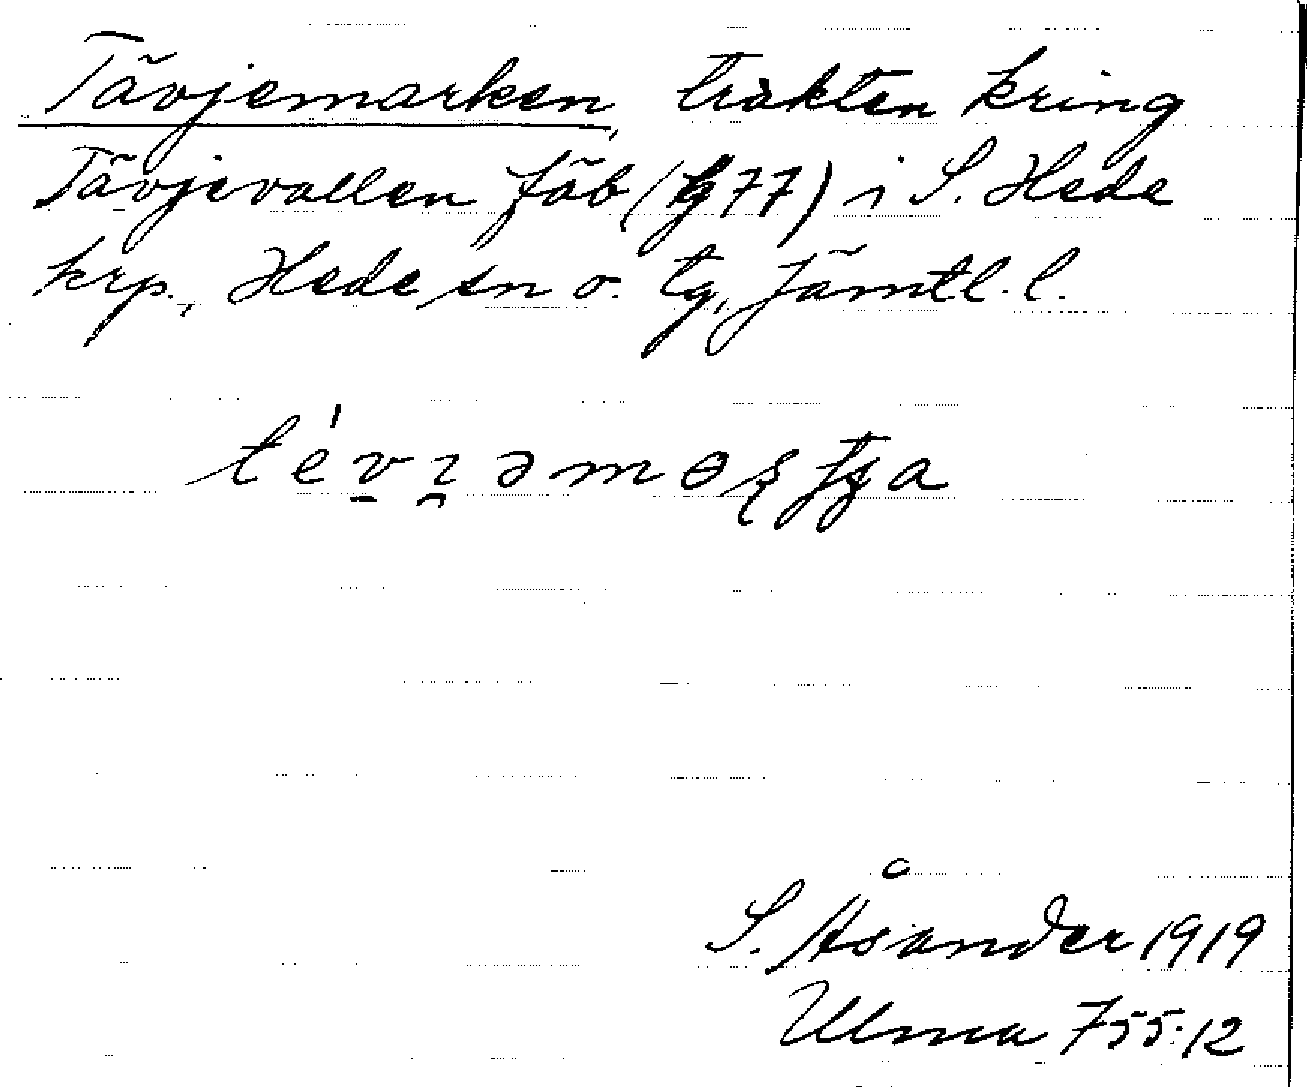 Tävjemarken, trakten kring
Tävjevallen fäb (Hg 77) i S. Hede
krp., Hede sn o. tg, Jämtl. l.
S. Åsander 1919
Ulma 755:12